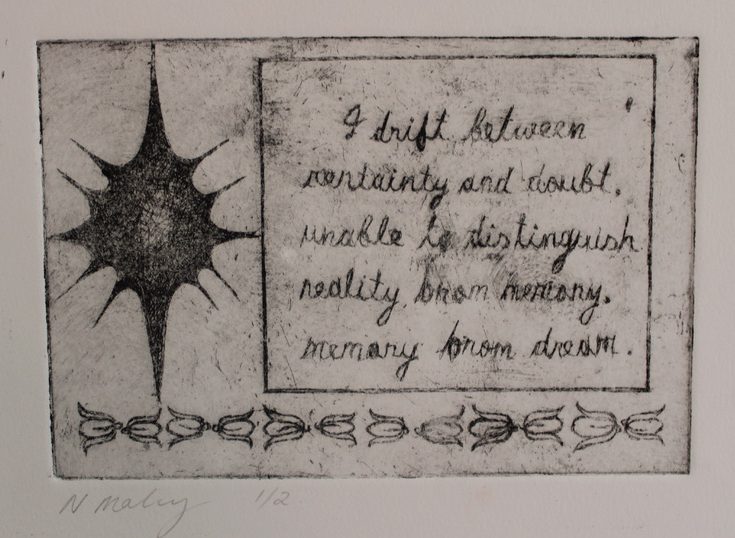 I drift between
certainty and doubt.
unable to distinguish
reality from memory.
memory from dream.
N 1/2